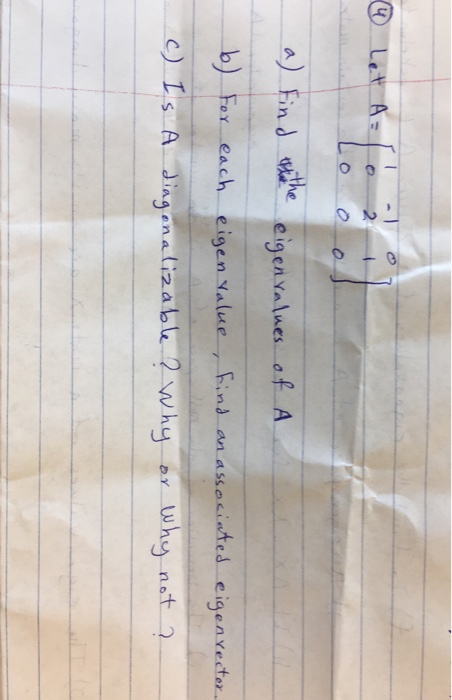 ④ Let A = [ 1 -1 0
0 2 1
0 0 0 ]
a) Find the eigenvalues of A
b) For each eigenvalue, find an associated eigenvector.
c) Is A diagonalizable? Why or Why not?